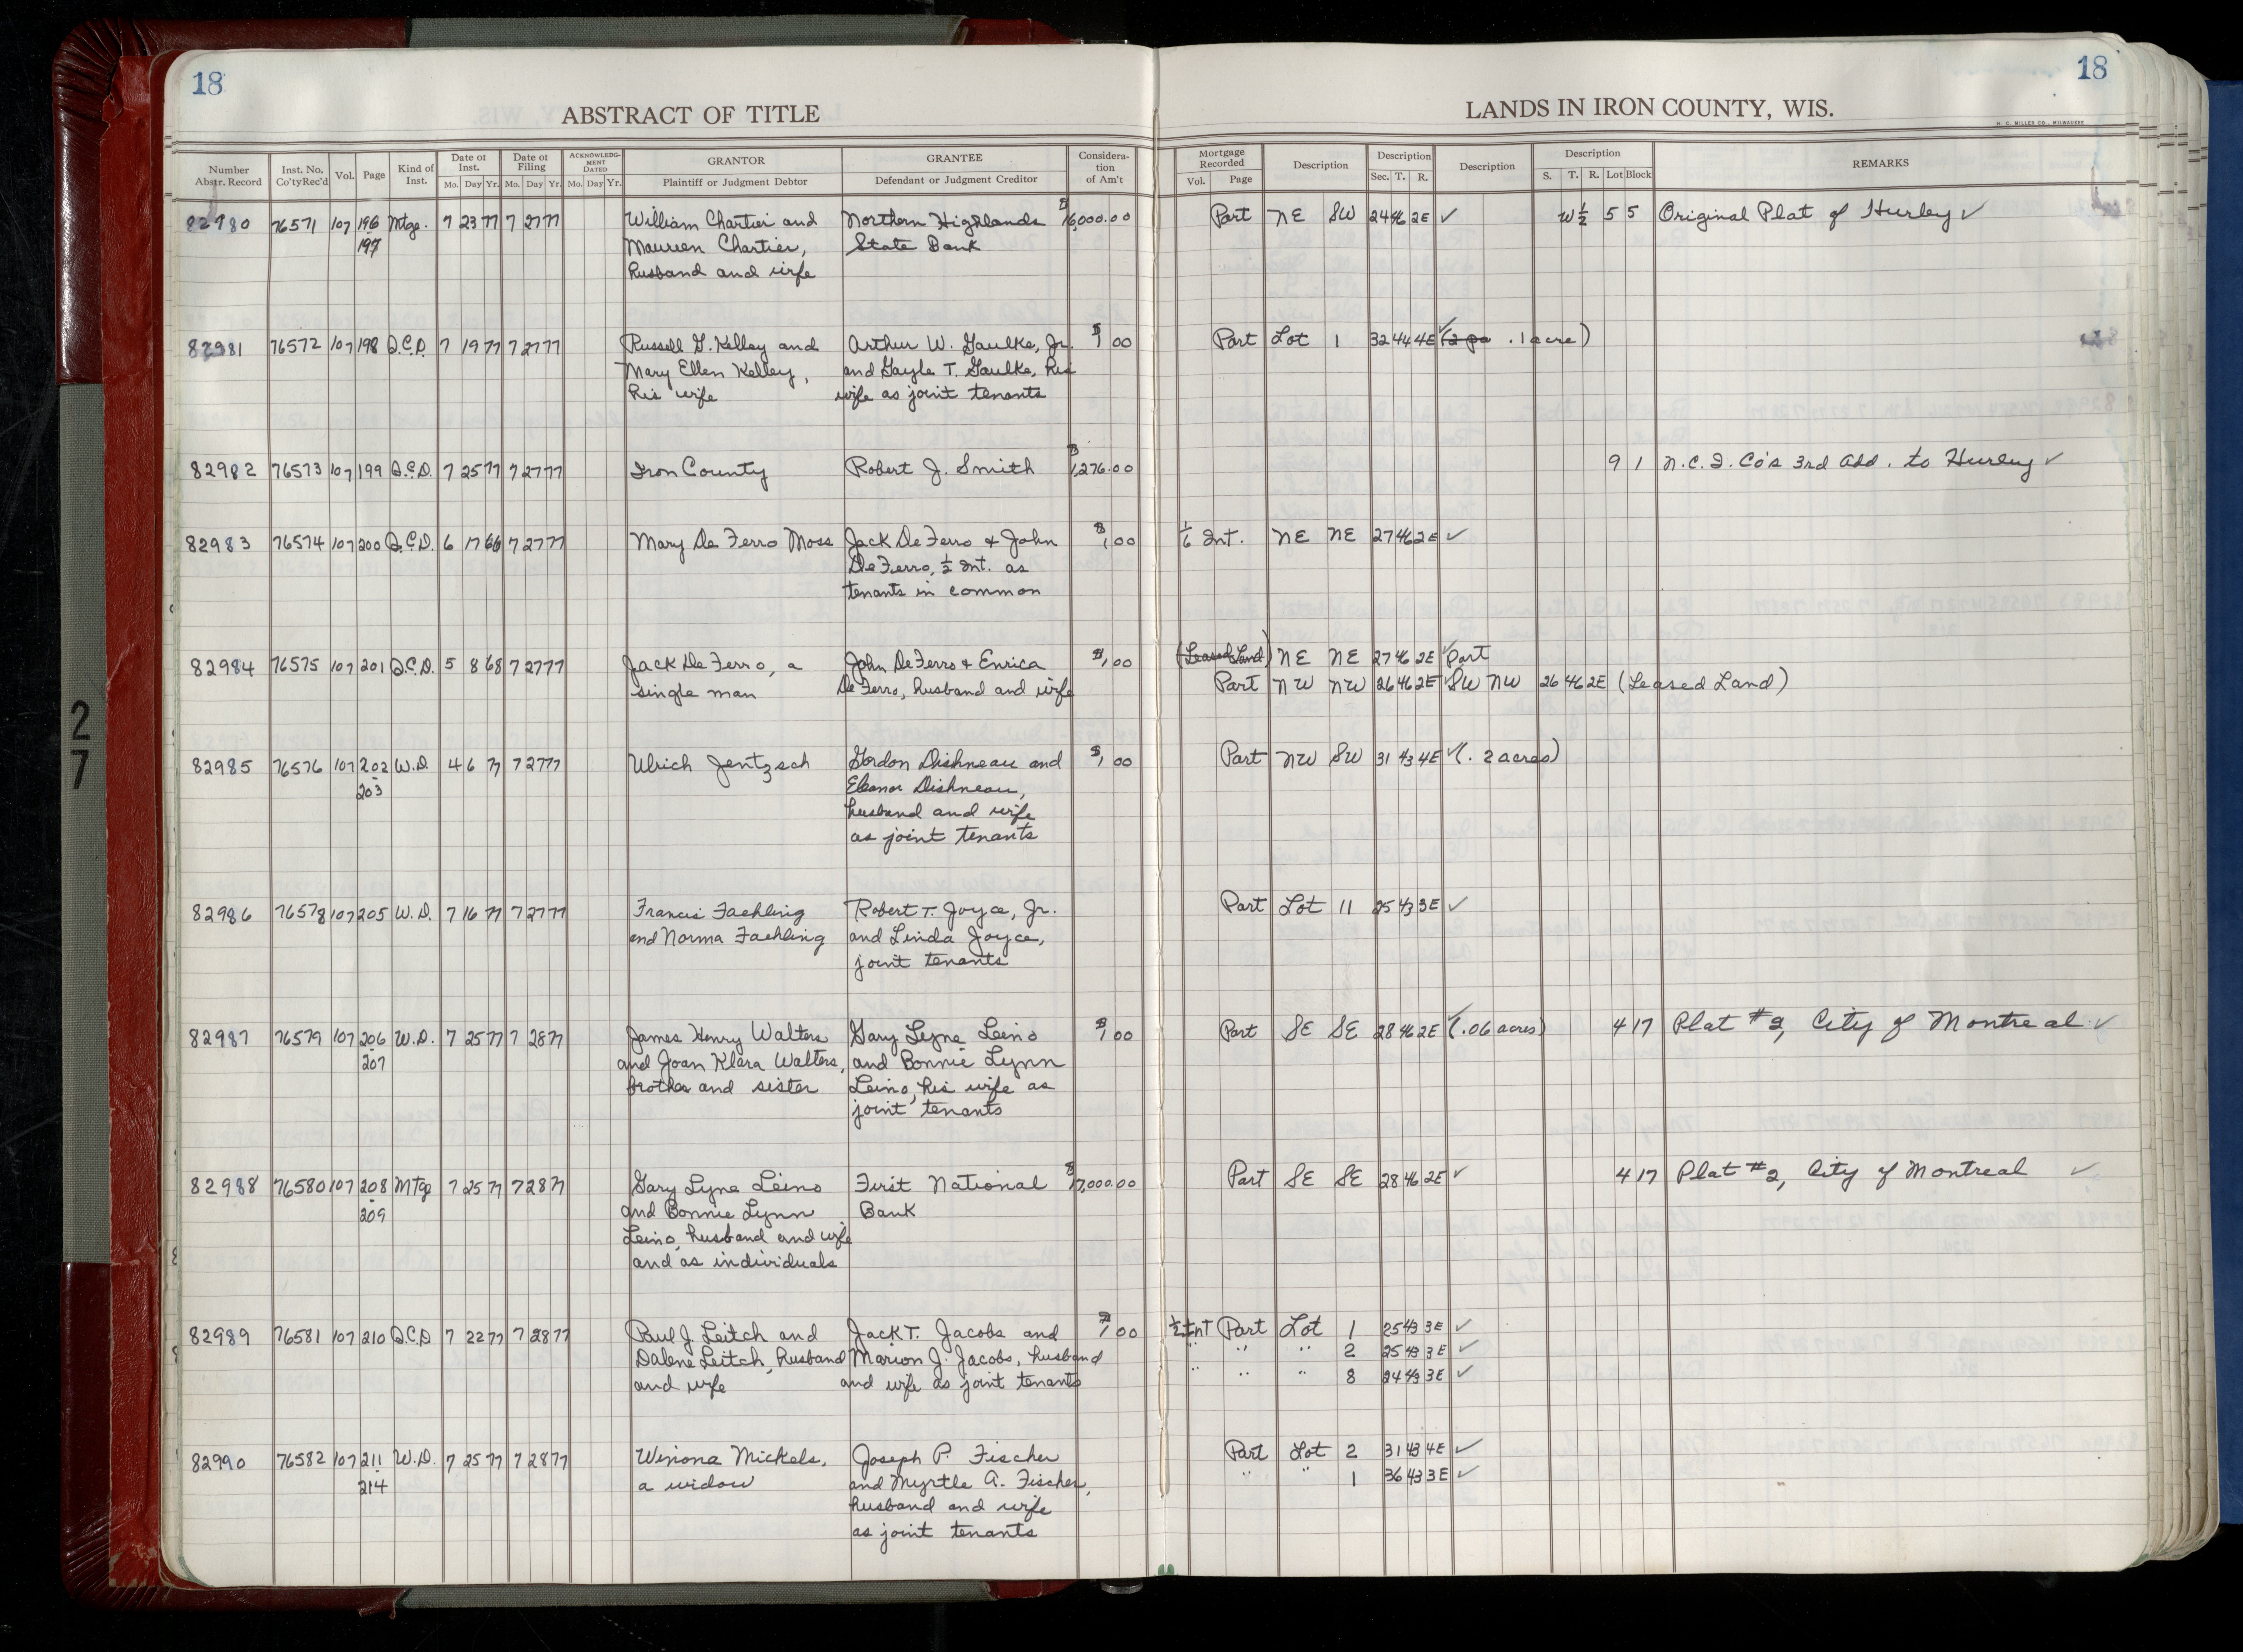 18
18
ABSTRACT OF TITLE
LANDS IN IRON COUNTY, WIS.
H. C. MILLER CO., MILWAUKEE
Number Abstr. Record Inst. No. Co'ty Rec'd Vol. Page Kind of Inst. Date of Inst. Mo. Day Yr. Date of Filing Mo. Day Yr. ACKNOWLEDGMENT DATED Mo. Day Yr. GRANTOR Plaintiff or Judgment Debtor GRANTEE Defendant or Judgment Creditor Consideration of Am't Mortgage Recorded Vol. Page Description Description Sec. T. R. Description Description S. T. R. Lot Block REMARKS
82980 76571 107 196 Mtge. 7 23 77 7 27 77 William Chartier and Northern Highlands $16,000.00 Part NE SW 24 46 2E ✓ W½ 5 5 Original Plat of Hurley ✓
197 Maureen Chartier, State Bank
husband and wife
82981 76572 107 198 Q.C.D. 7 19 77 7 27 77 Russell G. Kelley and Arthur W. Gaulke, Jr. $1.00 Part Lot 1 32 44 4E ✓ (2 pa .1 acre)
Mary Ellen Kelley, and Gayle T. Gaulke, his
his wife wife as joint tenants
82982 76573 107 199 Q.C.D. 7 25 77 7 27 77 Iron County Robert J. Smith $1,276.00 9 1 N.C.I. Co's 3rd Add. to Hurley ✓
82983 76574 107 200 Q.C.D. 6 17 66 7 27 77 Mary De Ferro Moss Jack De Ferro & John $1.00 1/6 Int. NE NE 27 46 2E ✓
De Ferro, ½ Int. as
tenants in common
82984 76575 107 201 Q.C.D. 5 8 68 7 27 77 Jack De Ferro, a John De Ferro & Enrica $1.00 (Leased Land) NE NE 27 46 2E ✓ Part
single man De Ferro, husband and wife Part NW NW 26 46 2E ✓ SW NW 26 46 2E (Leased Land)
82985 76576 107 202 W.D. 4 6 77 7 27 77 Ulrich Jentzsch Gordon Dishneau and $1.00 Part NW SW 31 43 4E ✓ (.2 acres)
203 Eleanor Dishneau,
husband and wife
as joint tenants
82986 76578 107 205 W.D. 7 16 77 7 27 77 Francis Faehling Robert T. Joyce, Jr. Part Lot 11 25 43 3E ✓
and Norma Faehling and Linda Joyce,
joint tenants
82987 76579 107 206 W.D. 7 25 77 7 28 77 James Henry Walters Gary Lyne Leino $1.00 Part SE SE 28 46 2E ✓ (.06 acres) 4 17 Plat #2, City of Montreal ✓
207 and Joan Klara Walters, and Bonnie Lynn
brother and sister Leino, his wife as
joint tenants
82988 76580 107 208 Mtge 7 25 77 7 28 77 Gary Lyne Leino First National $17,000.00 Part SE SE 28 46 2E ✓ 4 17 Plat #2, City of Montreal ✓
209 and Bonnie Lynn Bank
Leino, husband and wife
and as individuals
82989 76581 107 210 Q.C.D 7 22 77 7 28 77 Paul J. Leitch and Jack T. Jacobs and $1.00 ½ Int Part Lot 1 25 43 3E ✓
Dalene Leitch, husband Marion J. Jacobs, husband " " " 2 25 43 3E ✓
and wife and wife as joint tenants " " " 8 24 43 3E ✓
82990 76582 107 211 W.D. 7 25 77 7 28 77 Winona Mickels, Joseph P. Fischer Part Lot 2 31 43 4E ✓
214 a widow and Myrtle A. Fischer, " " 1 36 43 3E ✓
husband and wife
as joint tenants
2
7